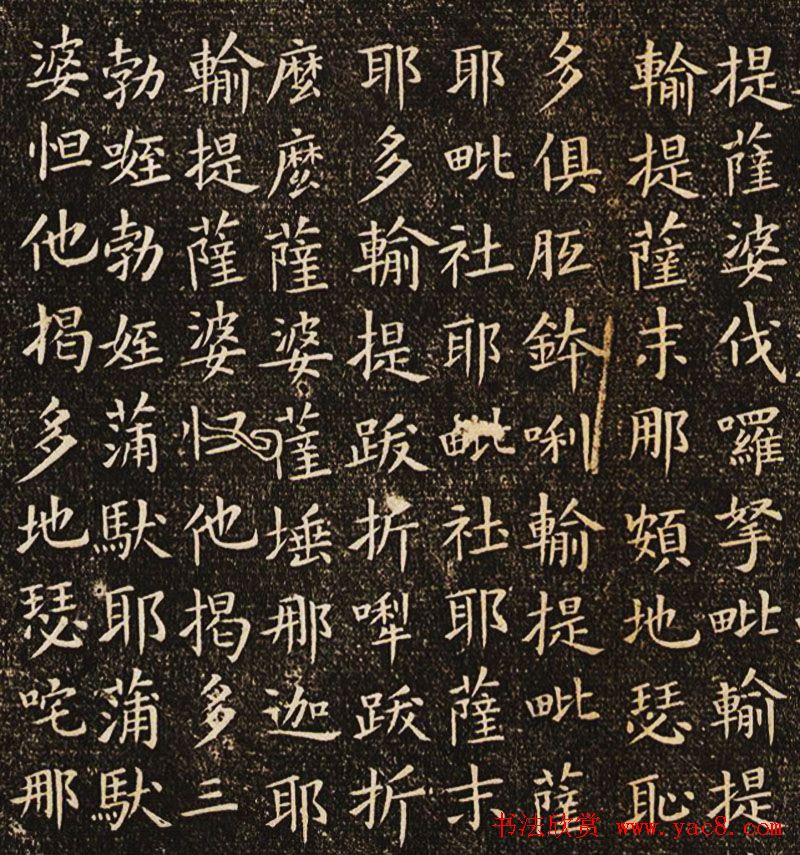 提薩婆伐囉拏毗輸提
輸提薩末那頞地瑟恥
多俱胝鉢唎輸提毗薩
耶毗社耶毗社耶薩末
耶多輸提跋折囇跋折
麼麼薩婆薩埵那迦耶
輸提薩婆怛他揭多三
勃𠸪勃姪蒲馱耶蒲馱
婆怛他揭多地瑟咤那
书法欣赏 www.yac8.com